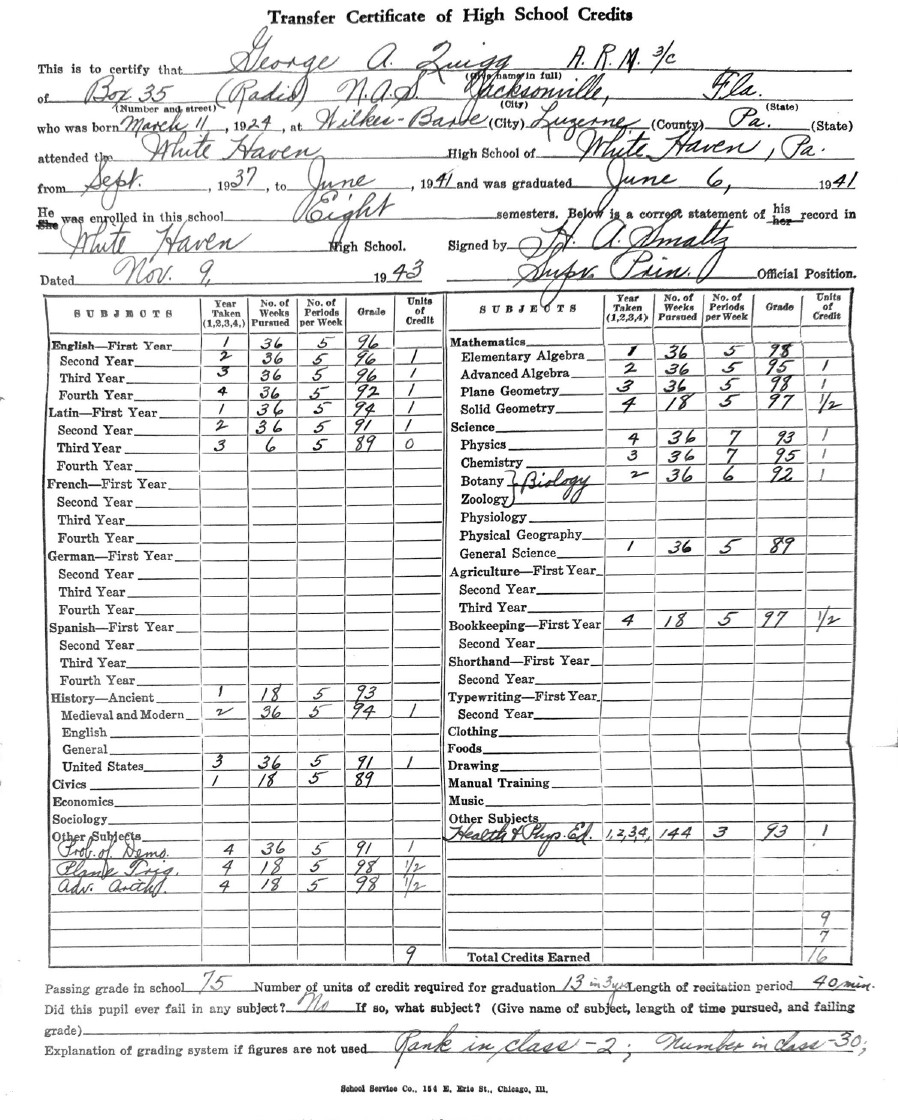 Transfer Certificate of High School Credits
This is to certify that George A. Quigg A. R. M. 3/c
(Give name in full)
of Box 35 (Radio) N.A.S. Jacksonville, Fla.
(Number and street) (City) (State)
who was born March 11, 1924, at Wilkes-Barre (City) Luzerne (County) Pa. (State)
attended the White Haven High School of White Haven, Pa.
from Sept. , 1937, to June , 1941 and was graduated June 6, 1941
He She was enrolled in this school Eight semesters. Below is a correct statement of his her record in
White Haven High School. Signed by H. A. Smaltz
Dated Nov. 9, 1943 Supv. Prin. Official Position.
SUBJECTS Year Taken (1,2,3,4,) No. of Weeks Pursued No. of Periods per Week Grade Units of Credit
English—First Year 1 36 5 96
Second Year 2 36 5 96 1
Third Year 3 36 5 96 1
Fourth Year 4 36 5 92 1
Latin—First Year 1 36 5 94 1
Second Year 2 36 5 91 1
Third Year 3 6 5 89 0
Fourth Year
French—First Year
Second Year
Third Year
Fourth Year
German—First Year
Second Year
Third Year
Fourth Year
Spanish—First Year
Second Year
Third Year
Fourth Year
History—Ancient 1 18 5 93
Medieval and Modern 2 36 5 94 1
English
General
United States 3 36 5 91 1
Civics 1 18 5 89
Economics
Sociology
Other Subjects
Prob. of Demo. 4 36 5 91 1
Plane Trig. 4 18 5 98 1/2
Adv. Arith. 4 18 5 98 1/2
9
SUBJECTS Year Taken (1,2,3,4,) No. of Weeks Pursued No. of Periods per Week Grade Units of Credit
Mathematics
Elementary Algebra 1 36 5 98
Advanced Algebra 2 36 5 95 1
Plane Geometry 3 36 5 98 1
Solid Geometry 4 18 5 97 1/2
Science
Physics 4 36 7 93 1
Chemistry 3 36 7 95 1
Botany } Biology 2 36 6 92 1
Zoology
Physiology
Physical Geography
General Science 1 36 5 89
Agriculture—First Year
Second Year
Third Year
Bookkeeping—First Year 4 18 5 97 1/2
Second Year
Shorthand—First Year
Second Year
Typewriting—First Year
Second Year
Clothing
Foods
Drawing
Manual Training
Music
Other Subjects
Health & Phys. Ed. 1,2,3,4, 144 3 93 1
9
7
Total Credits Earned 16
Passing grade in school 75 Number of units of credit required for graduation 13 in 3 yrs Length of recitation period 40 min.
Did this pupil ever fail in any subject? No If so, what subject? (Give name of subject, length of time pursued, and failing
grade)
Explanation of grading system if figures are not used Rank in class - 2; Number in class - 30;
School Service Co., 154 E. Erie St., Chicago, Ill.